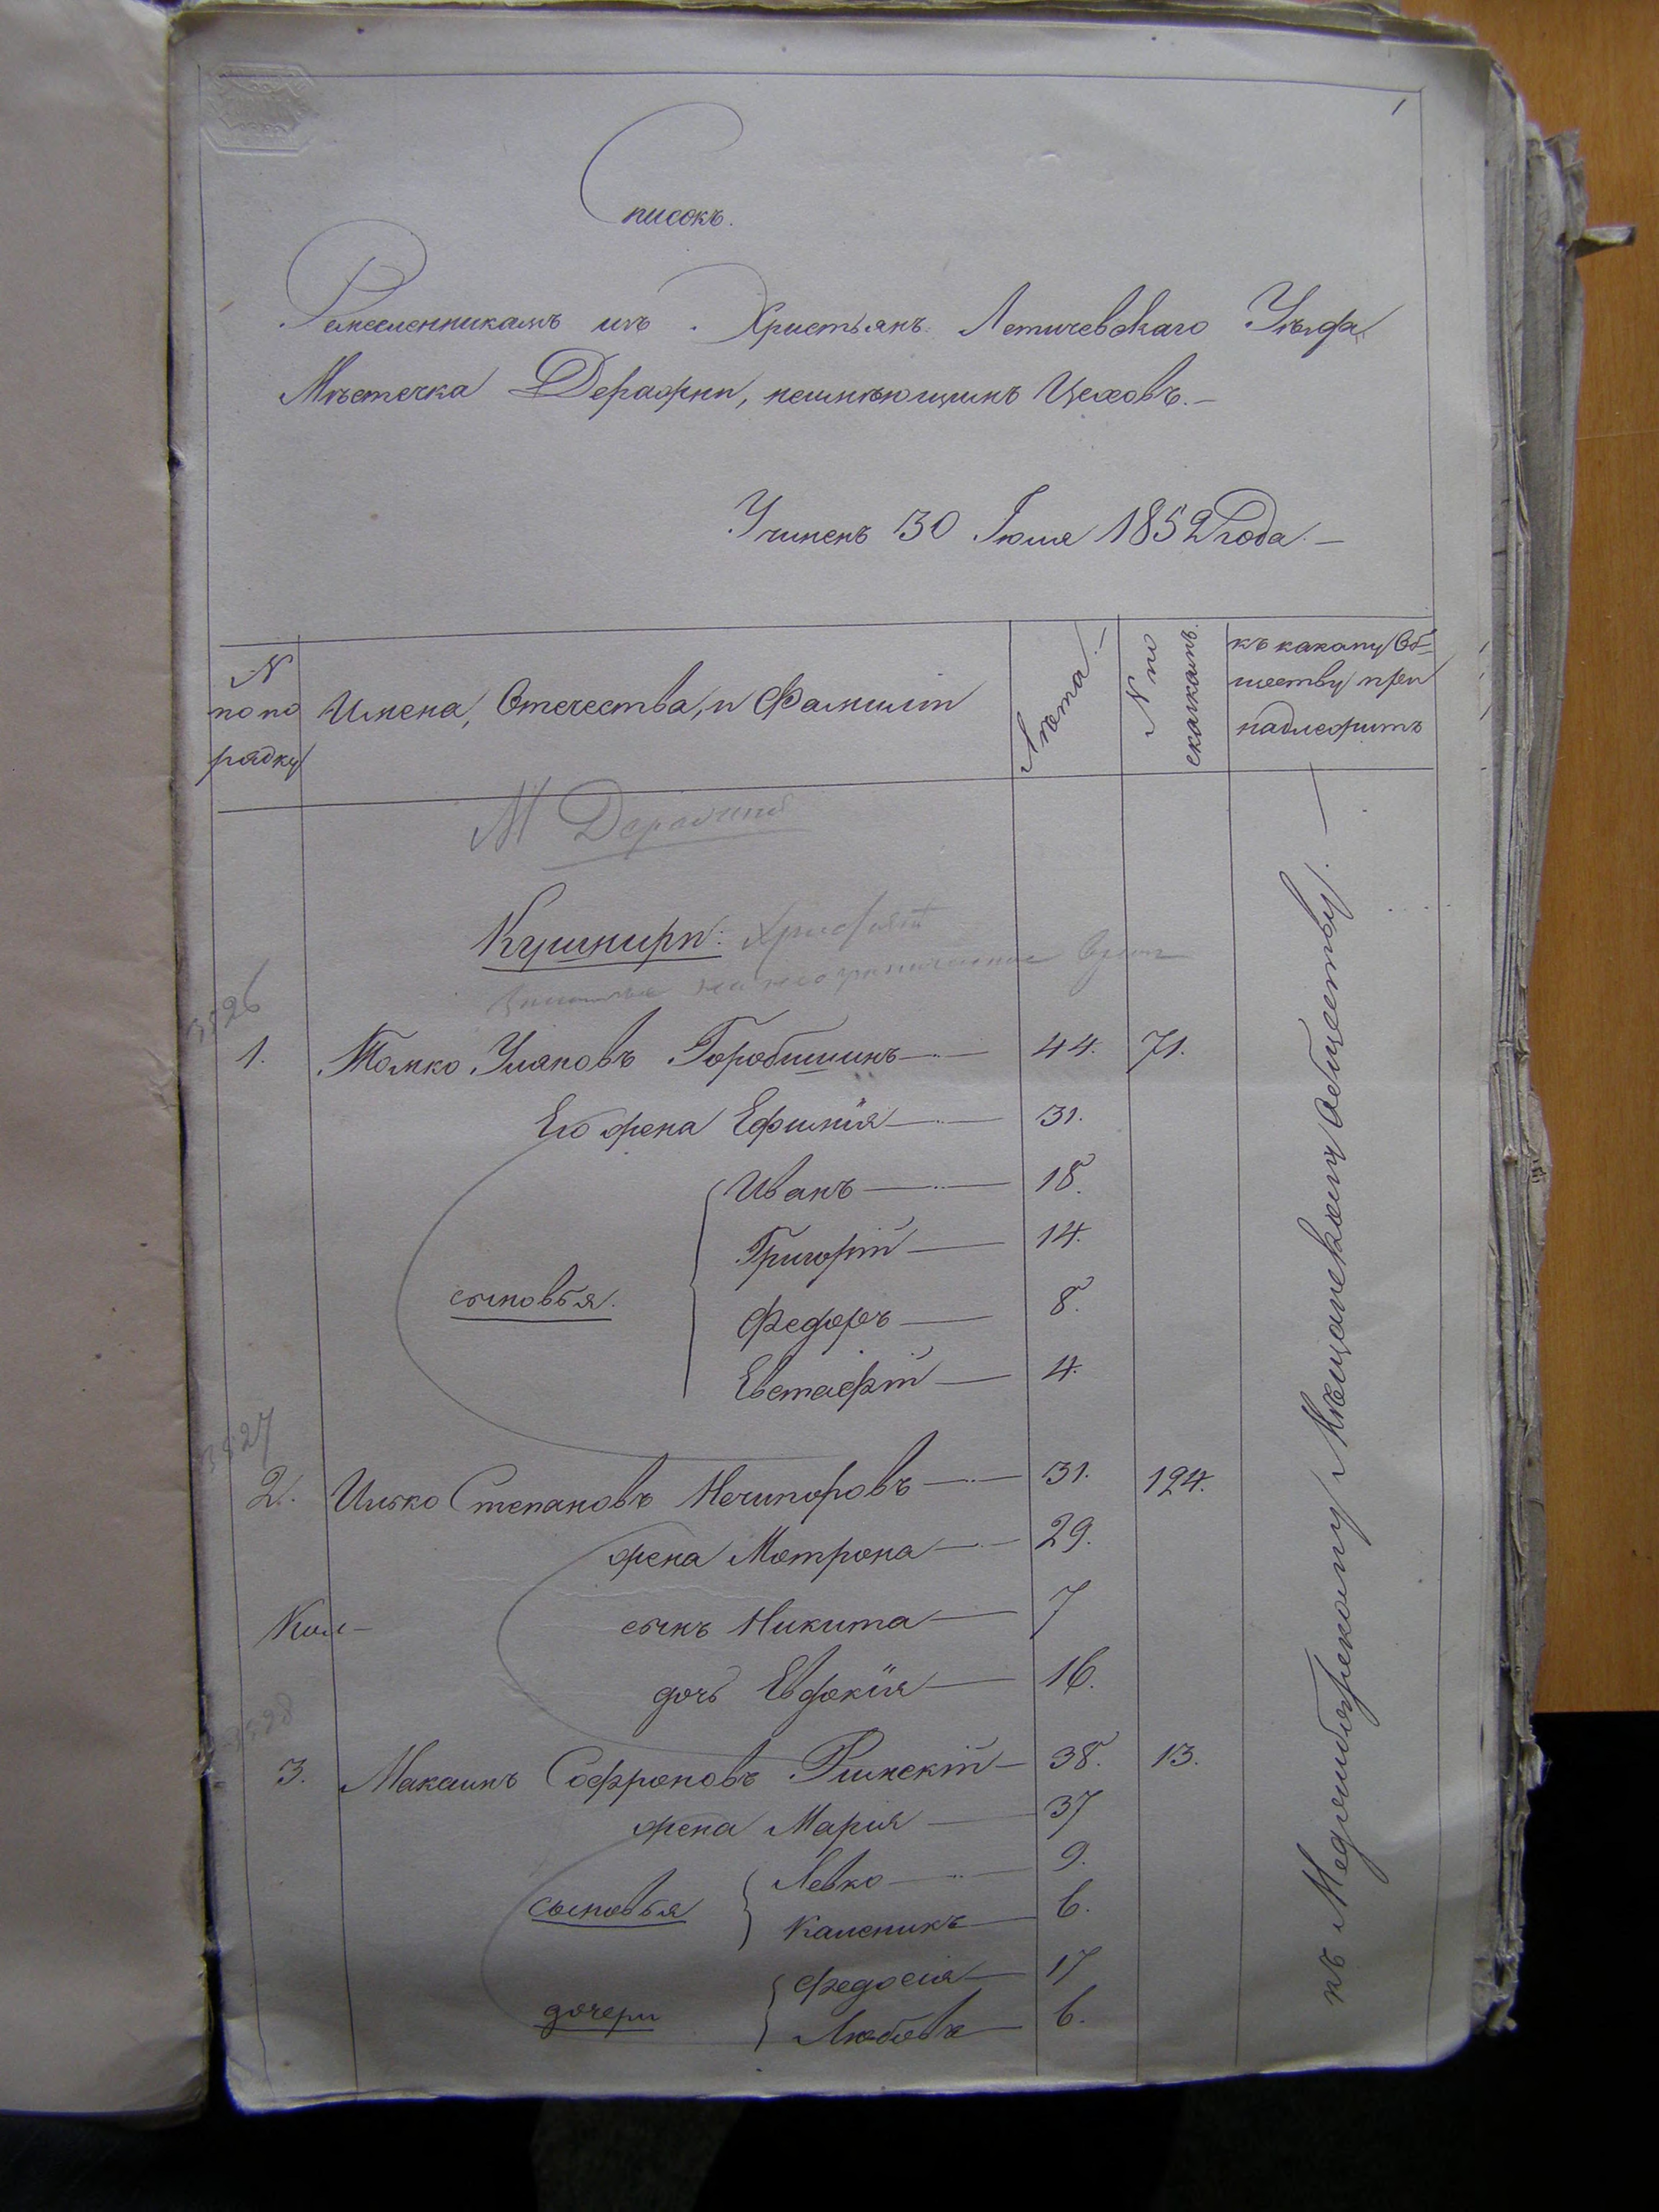 1
Списокъ.
Ремесленникамъ изъ Христьянъ Летичевскаго Уѣзда
Мѣстечка Деражни, неимѣющимъ Цеховъ.—
Учиненъ 30 Іюля 1852 Года.—
N по порядку
Имена, Отечества, и Фамиліи
Лѣта.—
N по сказкамъ.
къ какому Об-
ществу при
надлежитъ
М Деражня
Кушниры:
3526
1. Томко Уляновъ Горобишинъ — 44. 71.
Его жена Ефимія — 31.
сыновья.
Иванъ — 18.
Григорій — 14.
Федоръ — 8.
Евстафій — 4.
3527
2. Илько Степановъ Нечипоровъ — 31. 124.
жена Мотрона — 29.
сынъ Никита — 7
дочь Евдокія — 16.
3528
3. Максимъ Софроновъ Римскій — 38. 13.
жена Мария — 37
сыновья
Левко — 9.
Каленикъ — 6.
дочери
Федосія — 17
Любовь — 6.
къ Меджибожскому Мѣщанскому Обществу. —